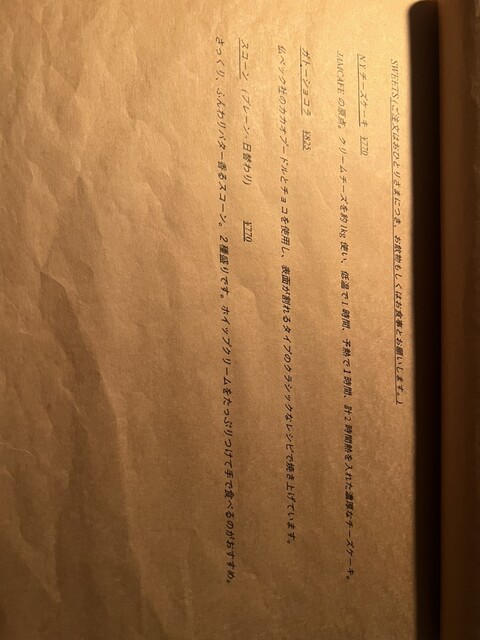 SWEETS (ご注文はおひとりさまにつき、お飲物もしくはお食事とお願いします。)
NYチーズケーキ ¥770
JAMCAFEの原点。クリームチーズを約1kg使い、低温で1時間、予熱で1時間、計2時間熱を入れた濃厚なチーズケーキ。
ガトーショコラ ¥825
仏ベック社のカカオプードルとチョコを使用し、表面が割れるタイプのクラシックなレシピで焼き上げています。
スコーン (プレーン、日替わり) ¥770
さっくり、ふんわりバター香るスコーン。2種盛りです。ホイップクリームをたっぷりつけて手で食べるのがおすすめ。